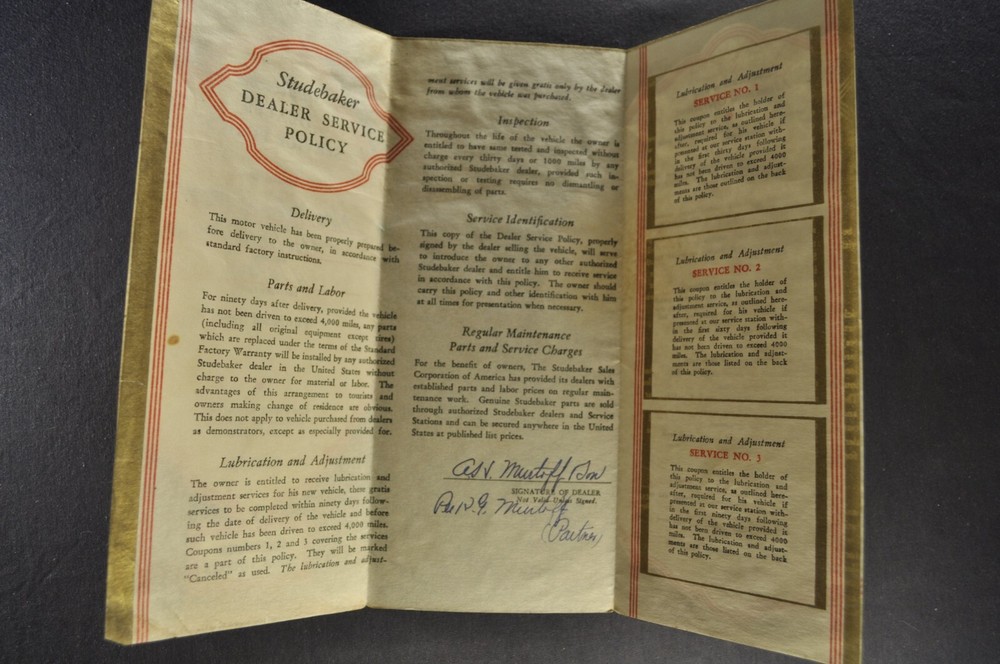 Studebaker
DEALER SERVICE
POLICY
Delivery
This motor vehicle has been properly prepared be-
fore delivery to the owner, in accordance with
standard factory instructions.
Parts and Labor
For ninety days after delivery, provided the vehicle
has not been driven to exceed 4,000 miles, any parts
(including all original equipment except tires)
which are replaced under the terms of the Standard
Factory Warranty will be installed by any authorized
Studebaker dealer in the United States without
charge to the owner for material or labor. The
advantages of this arrangement to tourists and
owners making change of residence are obvious.
This does not apply to vehicle purchased from dealers
as demonstrators, except as especially provided for.
Lubrication and Adjustment
The owner is entitled to receive lubrication and
adjustment services for his new vehicle, these gratis
services to be completed within ninety days follow-
ing the date of delivery of the vehicle and before
such vehicle has been driven to exceed 4,000 miles.
Coupons numbers 1, 2 and 3 covering the services
are a part of this policy. They will be marked
"Canceled" as used. The lubrication and adjust-
ment services will be given gratis only by the dealer
from whom the vehicle was purchased.
Inspection
Throughout the life of the vehicle the owner is
entitled to have same tested and inspected without
charge every thirty days or 1000 miles by any
authorized Studebaker dealer, provided such in-
spection or testing requires no dismantling or
disassembling of parts.
Service Identification
This copy of the Dealer Service Policy, properly
signed by the dealer selling the vehicle, will serve
to introduce the owner to any other authorized
Studebaker dealer and entitle him to receive service
in accordance with this policy. The owner should
carry this policy and other identification with him
at all times for presentation when necessary.
Regular Maintenance
Parts and Service Charges
For the benefit of owners, The Studebaker Sales
Corporation of America has provided its dealers with
established parts and labor prices on regular main-
tenance work. Genuine Studebaker parts are sold
through authorized Studebaker dealers and Service
Stations and can be secured anywhere in the United
States at published list prices.
SIGNATURE OF DEALER
Not Valid Unless Signed.
(Partner)
Lubrication and Adjustment
SERVICE NO. 1
This coupon entitles the holder of
this policy to the lubrication and
adjustment service, as outlined here-
after, required for his vehicle if
presented at our service station with-
in the first thirty days following
delivery of the vehicle provided it
has not been driven to exceed 4000
miles. The lubrication and adjust-
ments are those outlined on the back
of this policy.
Lubrication and Adjustment
SERVICE NO. 2
This coupon entitles the holder of
this policy to the lubrication and
adjustment service, as outlined here-
after, required for his vehicle if
presented at our service station with-
in the first sixty days following
delivery of the vehicle provided it
has not been driven to exceed 4000
miles. The lubrication and adjust-
ments are those listed on the back
of this policy.
Lubrication and Adjustment
SERVICE NO. 3
This coupon entitles the holder of
this policy to the lubrication and
adjustment service, as outlined here-
after, required for his vehicle if
presented at our service station with-
in the first ninety days following
delivery of the vehicle provided it
has not been driven to exceed 4000
miles. The lubrication and adjust-
ments are those listed on the back
of this policy.